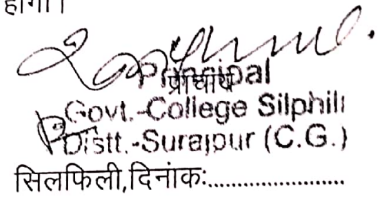 होगा।
प्राचार्य
Principal
Govt.-College Silphili
Distt.-Surajpur (C.G.)
सिलफिली,दिनांकः.......................